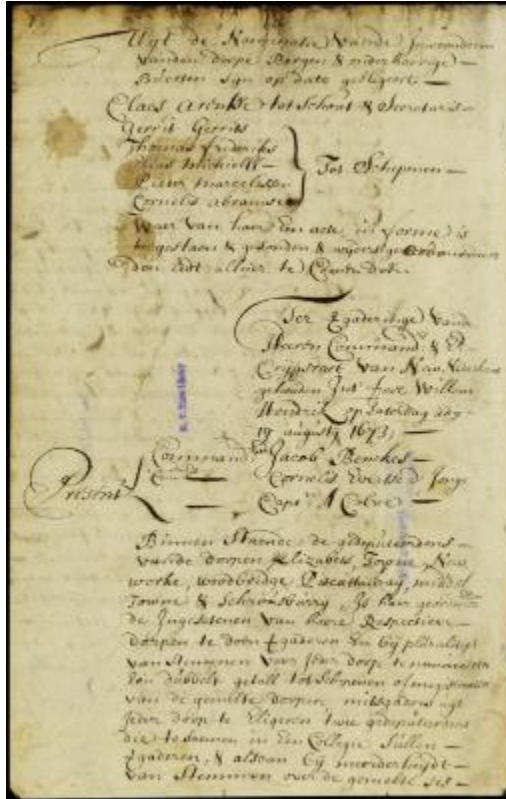 Uijt de Nominatie vande Inwoonderen
vanden dorpe Bergen & onderhoorige
Buerten sijn op date geeligeert
Claes Arentse tot Schout & Secretaris
Gerrit Gerrits
Thomas Frederiks
Elias Michielss
Pieter Marcelissen
Cornelis Abramse
Tot Schepenen
Waer van haer Een acte in forme is
toegestaen & gesonden &
den Eedt alhier te Comen doen
Ter Vgaderinge vande
Heeren Command. &
Crijgsraet van New Nederlant
gehouden Int fort Willem
Hendrik op Saterdag adij
19 augusti 1673
Present
Command Jacob Benckes
Cornelis Evertse d' Jonge
Capt. A Colve
Binnen Staende de gedeputeerdens
vande dorpen Elizabets Towne, New
worke, woodbridge Piscattaway, middel
Towne & Schrousburry, Is haer
de Ingesetenen van hare Respective
dorpen te doen Vgaderen En bij pluraliteijt
van Stemmen voor Ieder dorp te nomineren
Een dubbelt getall tot Schepenen
van de gemelte dorpen mitsgaders uijt
Ieder dorp te Eligeren twee gedeputeerdens
die te saemen in Een Collegie Sullen
Vgaderen, & alsdan bij meerderheijdt
van Stemmen over de gemelte ses